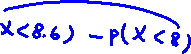 x<8.6) - p(x<8)